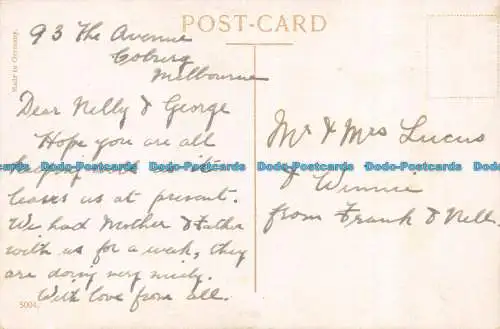 POST-CARD
Made in Germany.
93 The Avenue
Coburg
Melbourne
Dear Nelly & George
Hope you are all
keeping well as it
leaves us at present.
We had Mother & Father
with us for a week, they
are doing very nicely.
With love from all.
5004.
Mr & Mrs Lucus
& Winnie
from Frank & Nell.
Dodo-Postcards Dodo-Postcards Dodo-Postcards Dodo-Postcards Dodo-Postcards